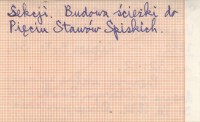 Sekcji. Budowa ścieżki do
Pięciu Stawów Spiskich.